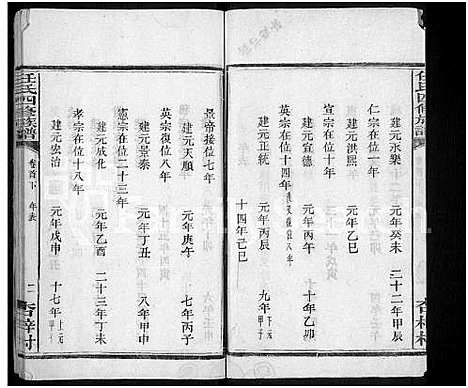 任氏四修族譜
建元永樂 元年癸未 二十二年甲辰
仁宗在位一年
建元洪熙 元年乙巳
宣宗在位十年
建元宣德 元年丙午 十年乙卯
英宗在位十四年
建元正統 元年丙辰 九年甲子
十四年己巳
景帝接位七年
建元天順 元年庚午 七年丙子
英宗復位八年
建元景泰 元年丁丑 八年甲申
憲宗在位二十三年
建元成化 元年乙酉 二十三年丁未
孝宗在位十八年
建元宏治 元年戊申 十七年甲子
任氏四修族譜
卷首下 年表
杏梓村